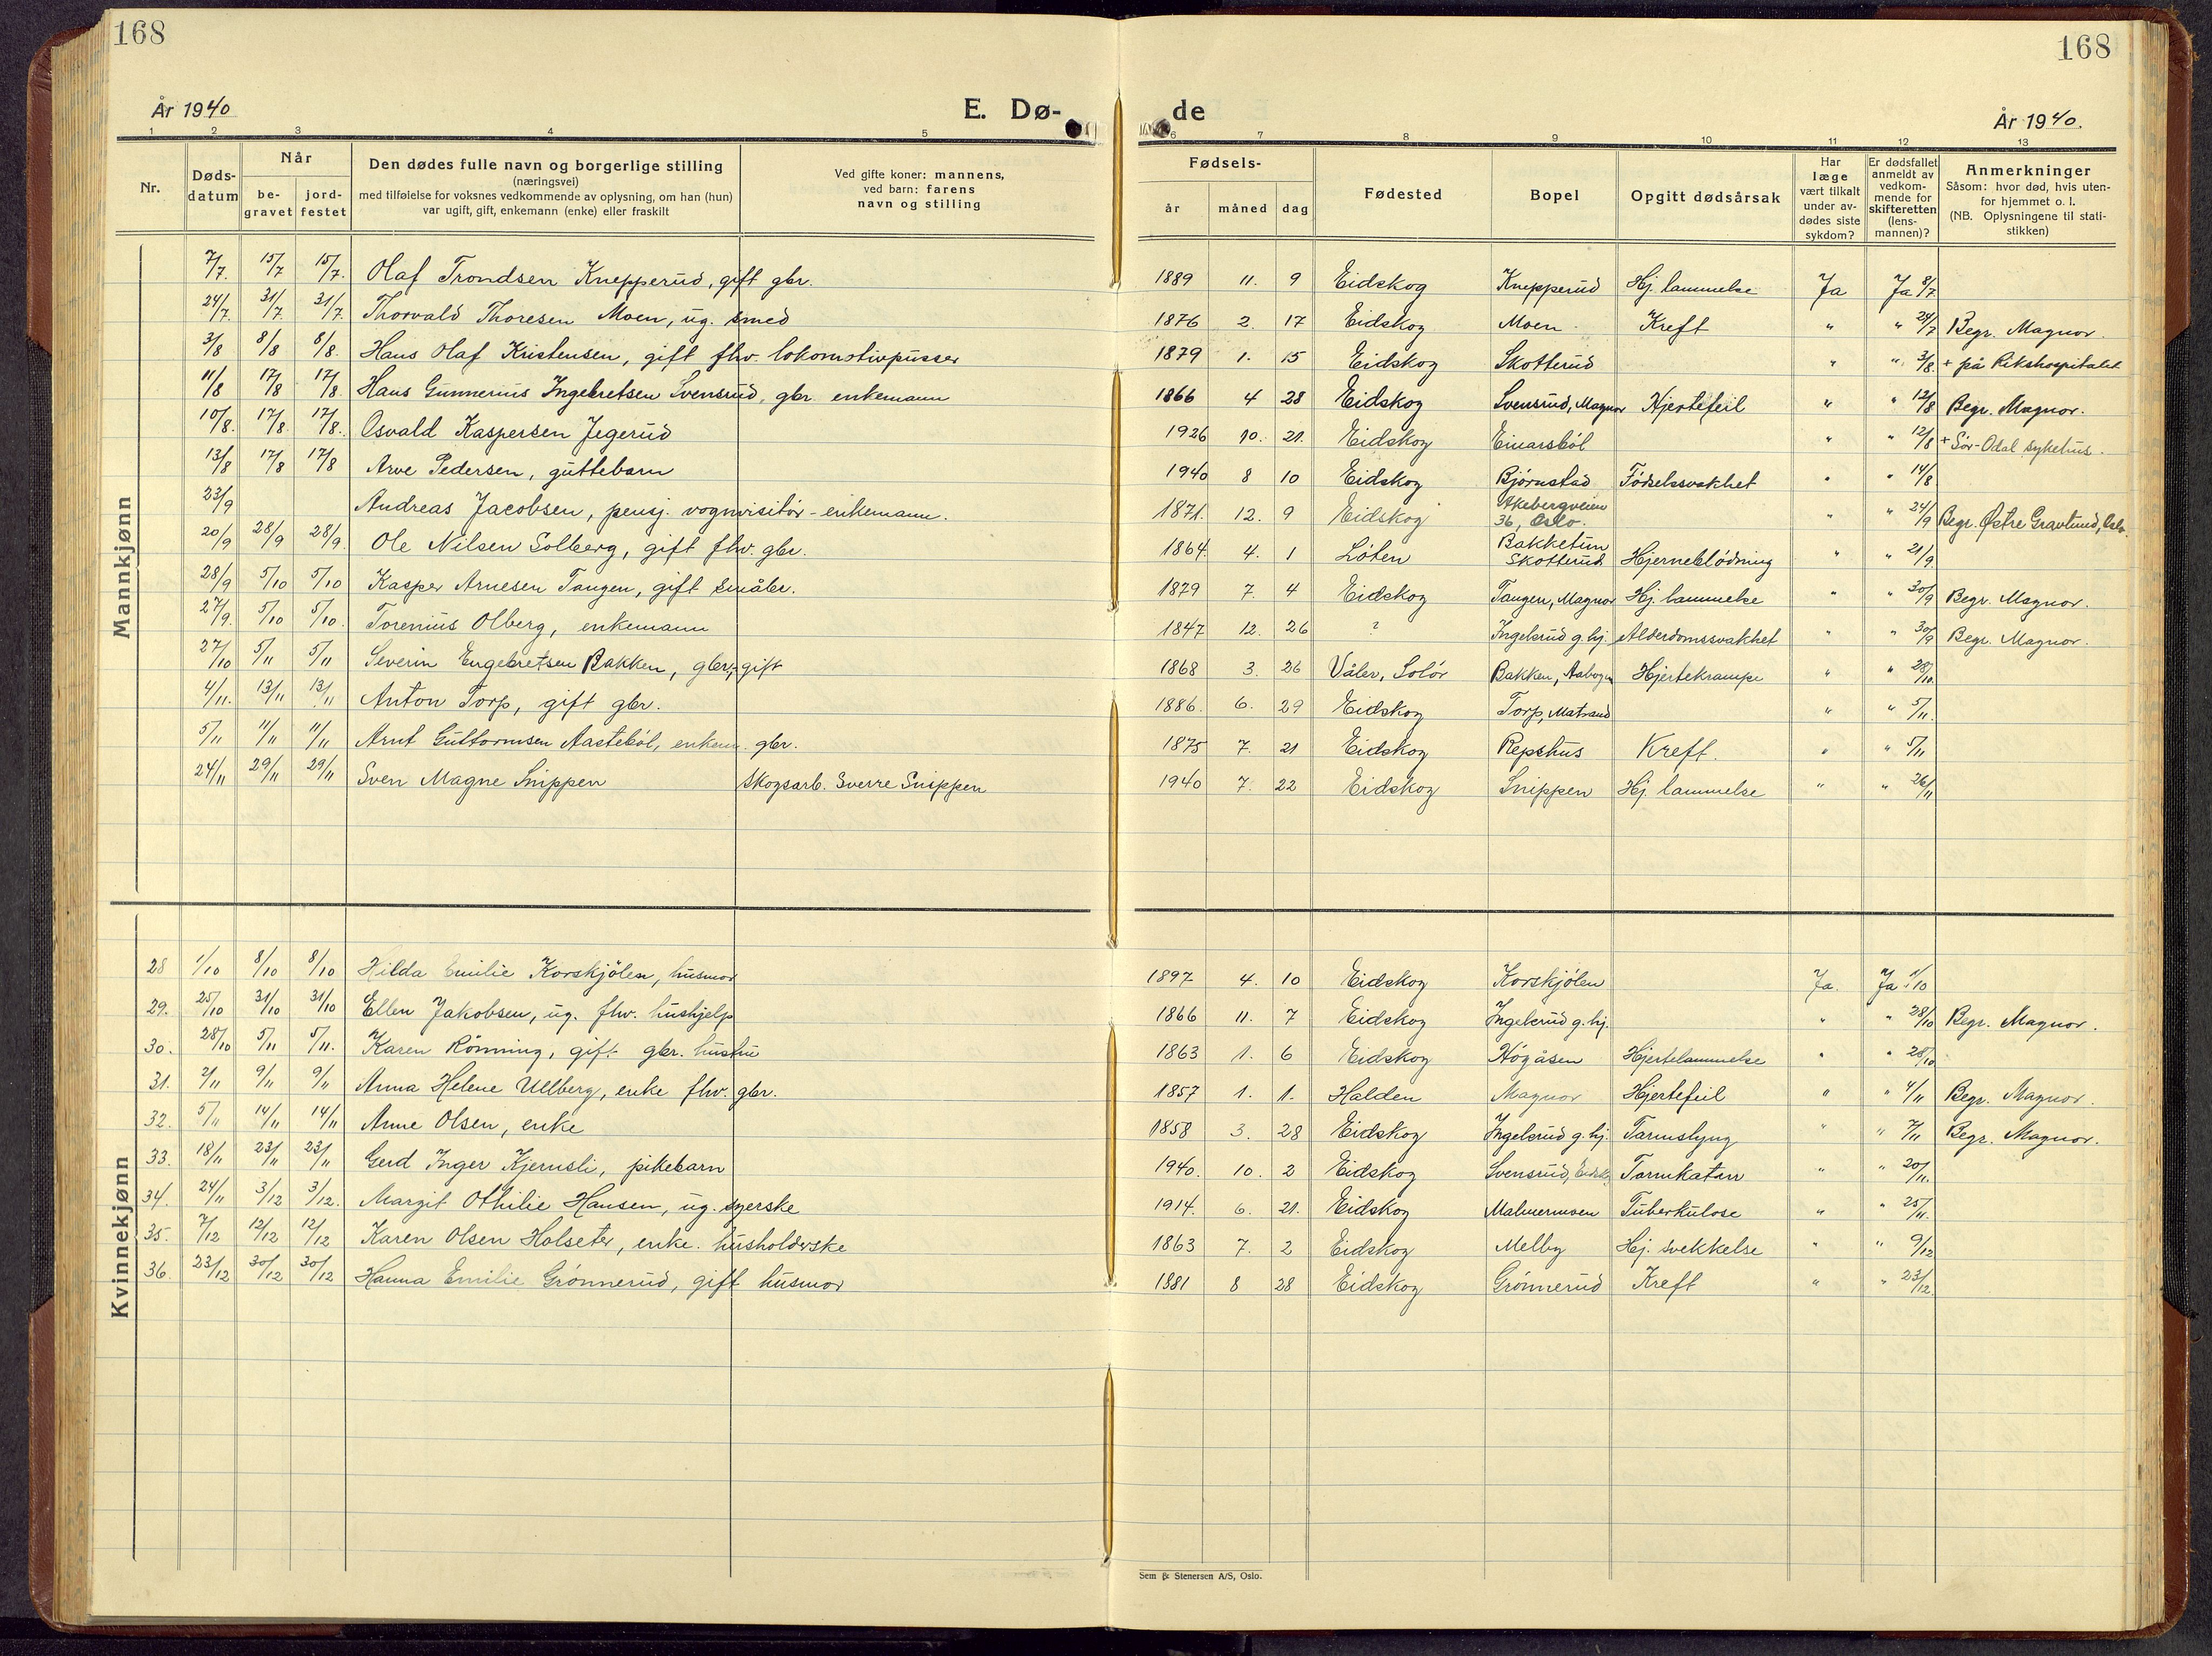 168
168
År 1940
E. Dø-
de
År 1940.
1 2 3 4 5 6 7 8 9 10 11 12 13
Nr.
Døds-datum
Når
be-gravet
jord-festet
Den dødes fulle navn og borgerlige stilling
(næringsvei)
med tilføielse for voksnes vedkommende av oplysning, om han (hun)
var ugift, gift, enkemann (enke) eller fraskilt
Ved gifte koner: mannens,
ved barn: farens
navn og stilling
Fødsels-
år måned dag
Fødested
Bopel
Opgitt dødsårsak
Har læge vært tilkalt under av-dødes siste sykdom?
Er dødsfallet anmeldt av vedkom-mende for skifteretten (lens-mannen)?
Anmerkninger
Såsom: hvor død, hvis uten-for hjemmet o. l.
(NB. Oplysningene til stati-stikken)
Mannkjønn
7/7. 15/7 15/7. Olaf Trondsen Knepperud, gift gbr. 1889 11. 9 Eidskog Knepperud Hj. lammelse Ja Ja 8/7
24/7. 31/7. 31/7. Thorvald Thoresen Moen, ug. smed 1876 2. 17 Eidskog Moen Kreft " " 24/7 Begr. Magnor.
3/8 8/8 8/8. Hans Olaf Kristensen, gift fhv. lokomotivpusser 1879 1. 15 Eidskog Skotterud " " 3/8. + på Rikshospitalet
11/8 17/8 17/8. Hans Gunnerius Ingebretsen Svensrud, gbr. enkemann 1866 4 28 Eidskog Svensrud, Magnor Hjertefeil " " 12/8 Begr. Magnor.
10/8. 17/8. 17/8. Osvald Kaspersen Jegerud 1926 10. 21. Eidskog Einarsböl " " 12/8 + Sör-Odal sykehus.
13/8 17/8 17/8 Arve Pedersen, guttebarn 1940 8 10 Eidskog Björnstad Födselssvakhet " " 14/8
23/9 Andreas Jacobsen, pensj. vognvisitör - enkemann. 1871. 12. 9 Eidskog Akebergveien 36, Oslo. " " 24/9 Begr. Østre Gravlund, Oslo.
20/9 28/9 28/9. Ole Nilsen Solberg, gift fhv. gbr. 1864. 4. 1 Löten Bakketun Skotterud Hjerneblödning " " 21/9
28/9 5/10 5/10 Kasper Arnesen Tangen, gift småbr. 1879 7. 4 Eidskog Tangen, Magnor Hj. lammelse " " 30/9 Begr. Magnor.
27/9. 5/10 5/10. Torenius Olberg, enkemann 1847 12. 26 ? Ingelsrud g.hj. Alderdomssvakhet " " 30/9 Begr. Magnor.
27/10 5/11 5/11 Severin Engebretsen Bakken, gbr., gift 1868 3. 26 Våler, Solör Bakken, Aabogen Hjertekrampe " " 28/10.
4/11. 13/11 13/11 Anton Torp, gift gbr. 1886. 6. 29 Eidskog Torp, Matrand " " 5/11.
5/11 11/11 11/11 Arnt Guttormsen Aasteböl, enkem. gbr. 1875 7. 21 Eidskog Repshus Kreft. " " 5/11
24/11 29/11 29/11 Sven Magne Snippen Skogsarb. Sverre Snippen 1940 7. 22 Eidskog Snippen Hj. lammelse " " 26/11
Kvinnekjønn
28 1/10 8/10 8/10 Hilda Emilie Korskjölen, husmor 1897 4. 10 Eidskog Korskjölen Ja. Ja 1/10
29. 25/10 31/10 31/10 Ellen Jakobsen, ug. fhv. hushjelp 1866 11. 7 Eidskog Ingelsrud g.hj. " " 28/10 Begr. Magnor.
30. 28/10 5/11 5/11. Karen Rönning, gift gbr. hustru 1863 1. 6 Eidskog Högåsen Hjertelammelse " " 28/10
31. 2/11 9/11 9/11 Anna Helene Ullberg, enke fhv. gbr. 1857 1. 1. Halden Magnor Hjertefeil " " 4/11 Begr. Magnor.
32. 5/11 14/11 14/11 Anne Olsen, enke 1858 3. 28 Eidskog Ingelsrud g.hj. Tarmslyng " " 7/11 Begr. Magnor.
33. 18/11 23/11 23/11 Gerd Inger Kjernsli, pikebarn 1940. 10. 2 Eidskog Svensrud, Tarmkatarr " " 20/11.
34. 24/11 3/12 3/12. Margit Othilie Hansen, ug. syerske 1914. 6. 21. Eidskog Malmermoen Tuberkulose " " 25/11.
35. 7/12 12/12 12/12 Karen Olsen Holseter, enke. husholderske 1863 7. 2 Eidskog Melby Hj. svekkelse " " 9/12
36. 23/12 30/12 30/12 Hanna Emilie Grönnerud, gift husmor 1881 8 28 Eidskog Grönnerud Kreft " " 23/12.
Sem & Stenersen A/S, Oslo.